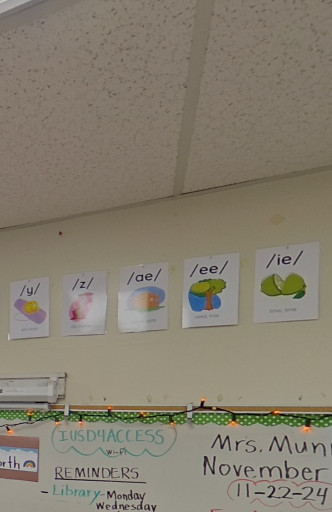 /y/
/z/
/ae/
/ee/
/ie/
IUSD4ACCESS
Wi-Fi
REMINDERS
- Library - Monday
Wednesday
orth
Mrs. Mun
November
11-22-24